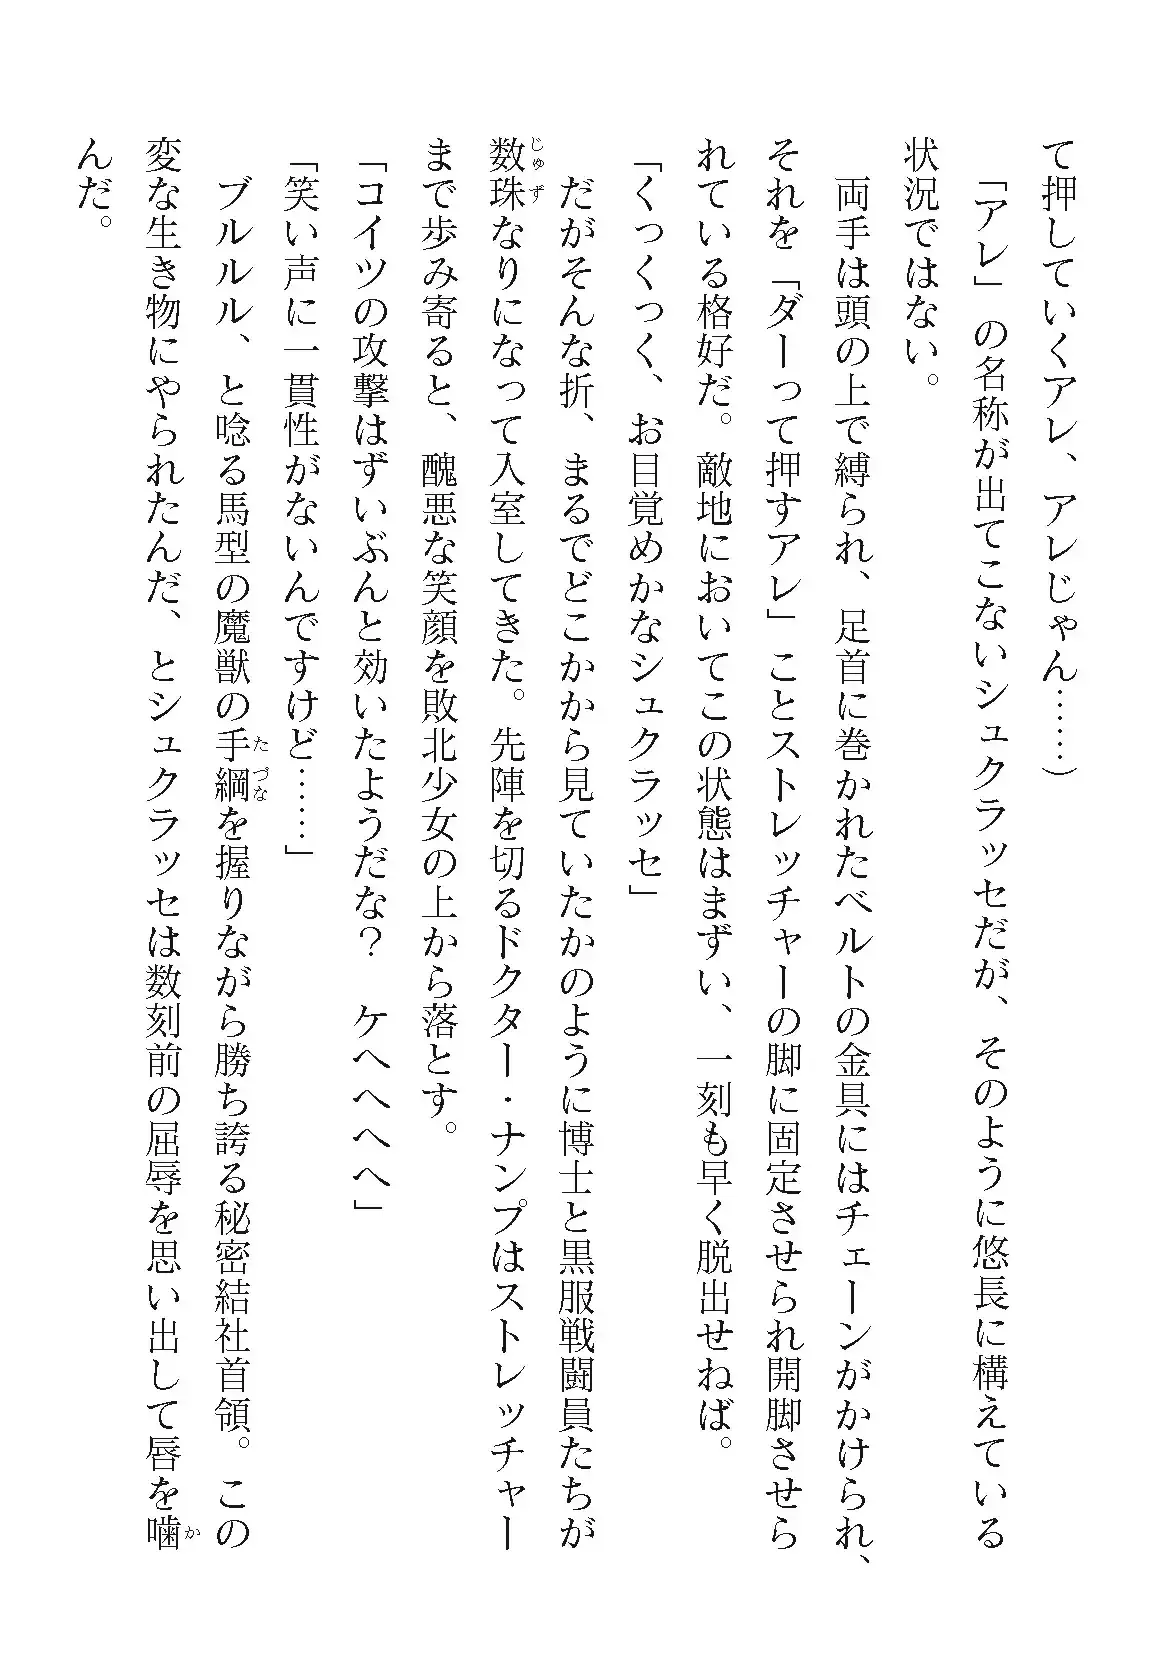 て押していくアレ、アレじゃん……）
「アレ」の名称が出てこないシュクラッセだが、そのように悠長に構えている
状況ではない。
両手は頭の上で縛られ、足首に巻かれたベルトの金具にはチェーンがかけられ、
それを「ダーって押すアレ」ことストレッチャーの脚に固定させられ開脚させら
れている格好だ。敵地においてこの状態はまずい、一刻も早く脱出せねば。
「くっくっく、お目覚めかなシュクラッセ」
だがそんな折、まるでどこかから見ていたかのように博士と黒服戦闘員たちが
数珠なりになって入室してきた。先陣を切るドクター・ナンプはストレッチャー
まで歩み寄ると、醜悪な笑顔を敗北少女の上から落とす。
「コイツの攻撃はずいぶんと効いたようだな？　ケヘヘヘヘ」
「笑い声に一貫性がないんですけど……」
ブルルル、と唸る馬型の魔獣の手綱を握りながら勝ち誇る秘密結社首領。この
変な生き物にやられたんだ、とシュクラッセは数刻前の屈辱を思い出して唇を噛
んだ。